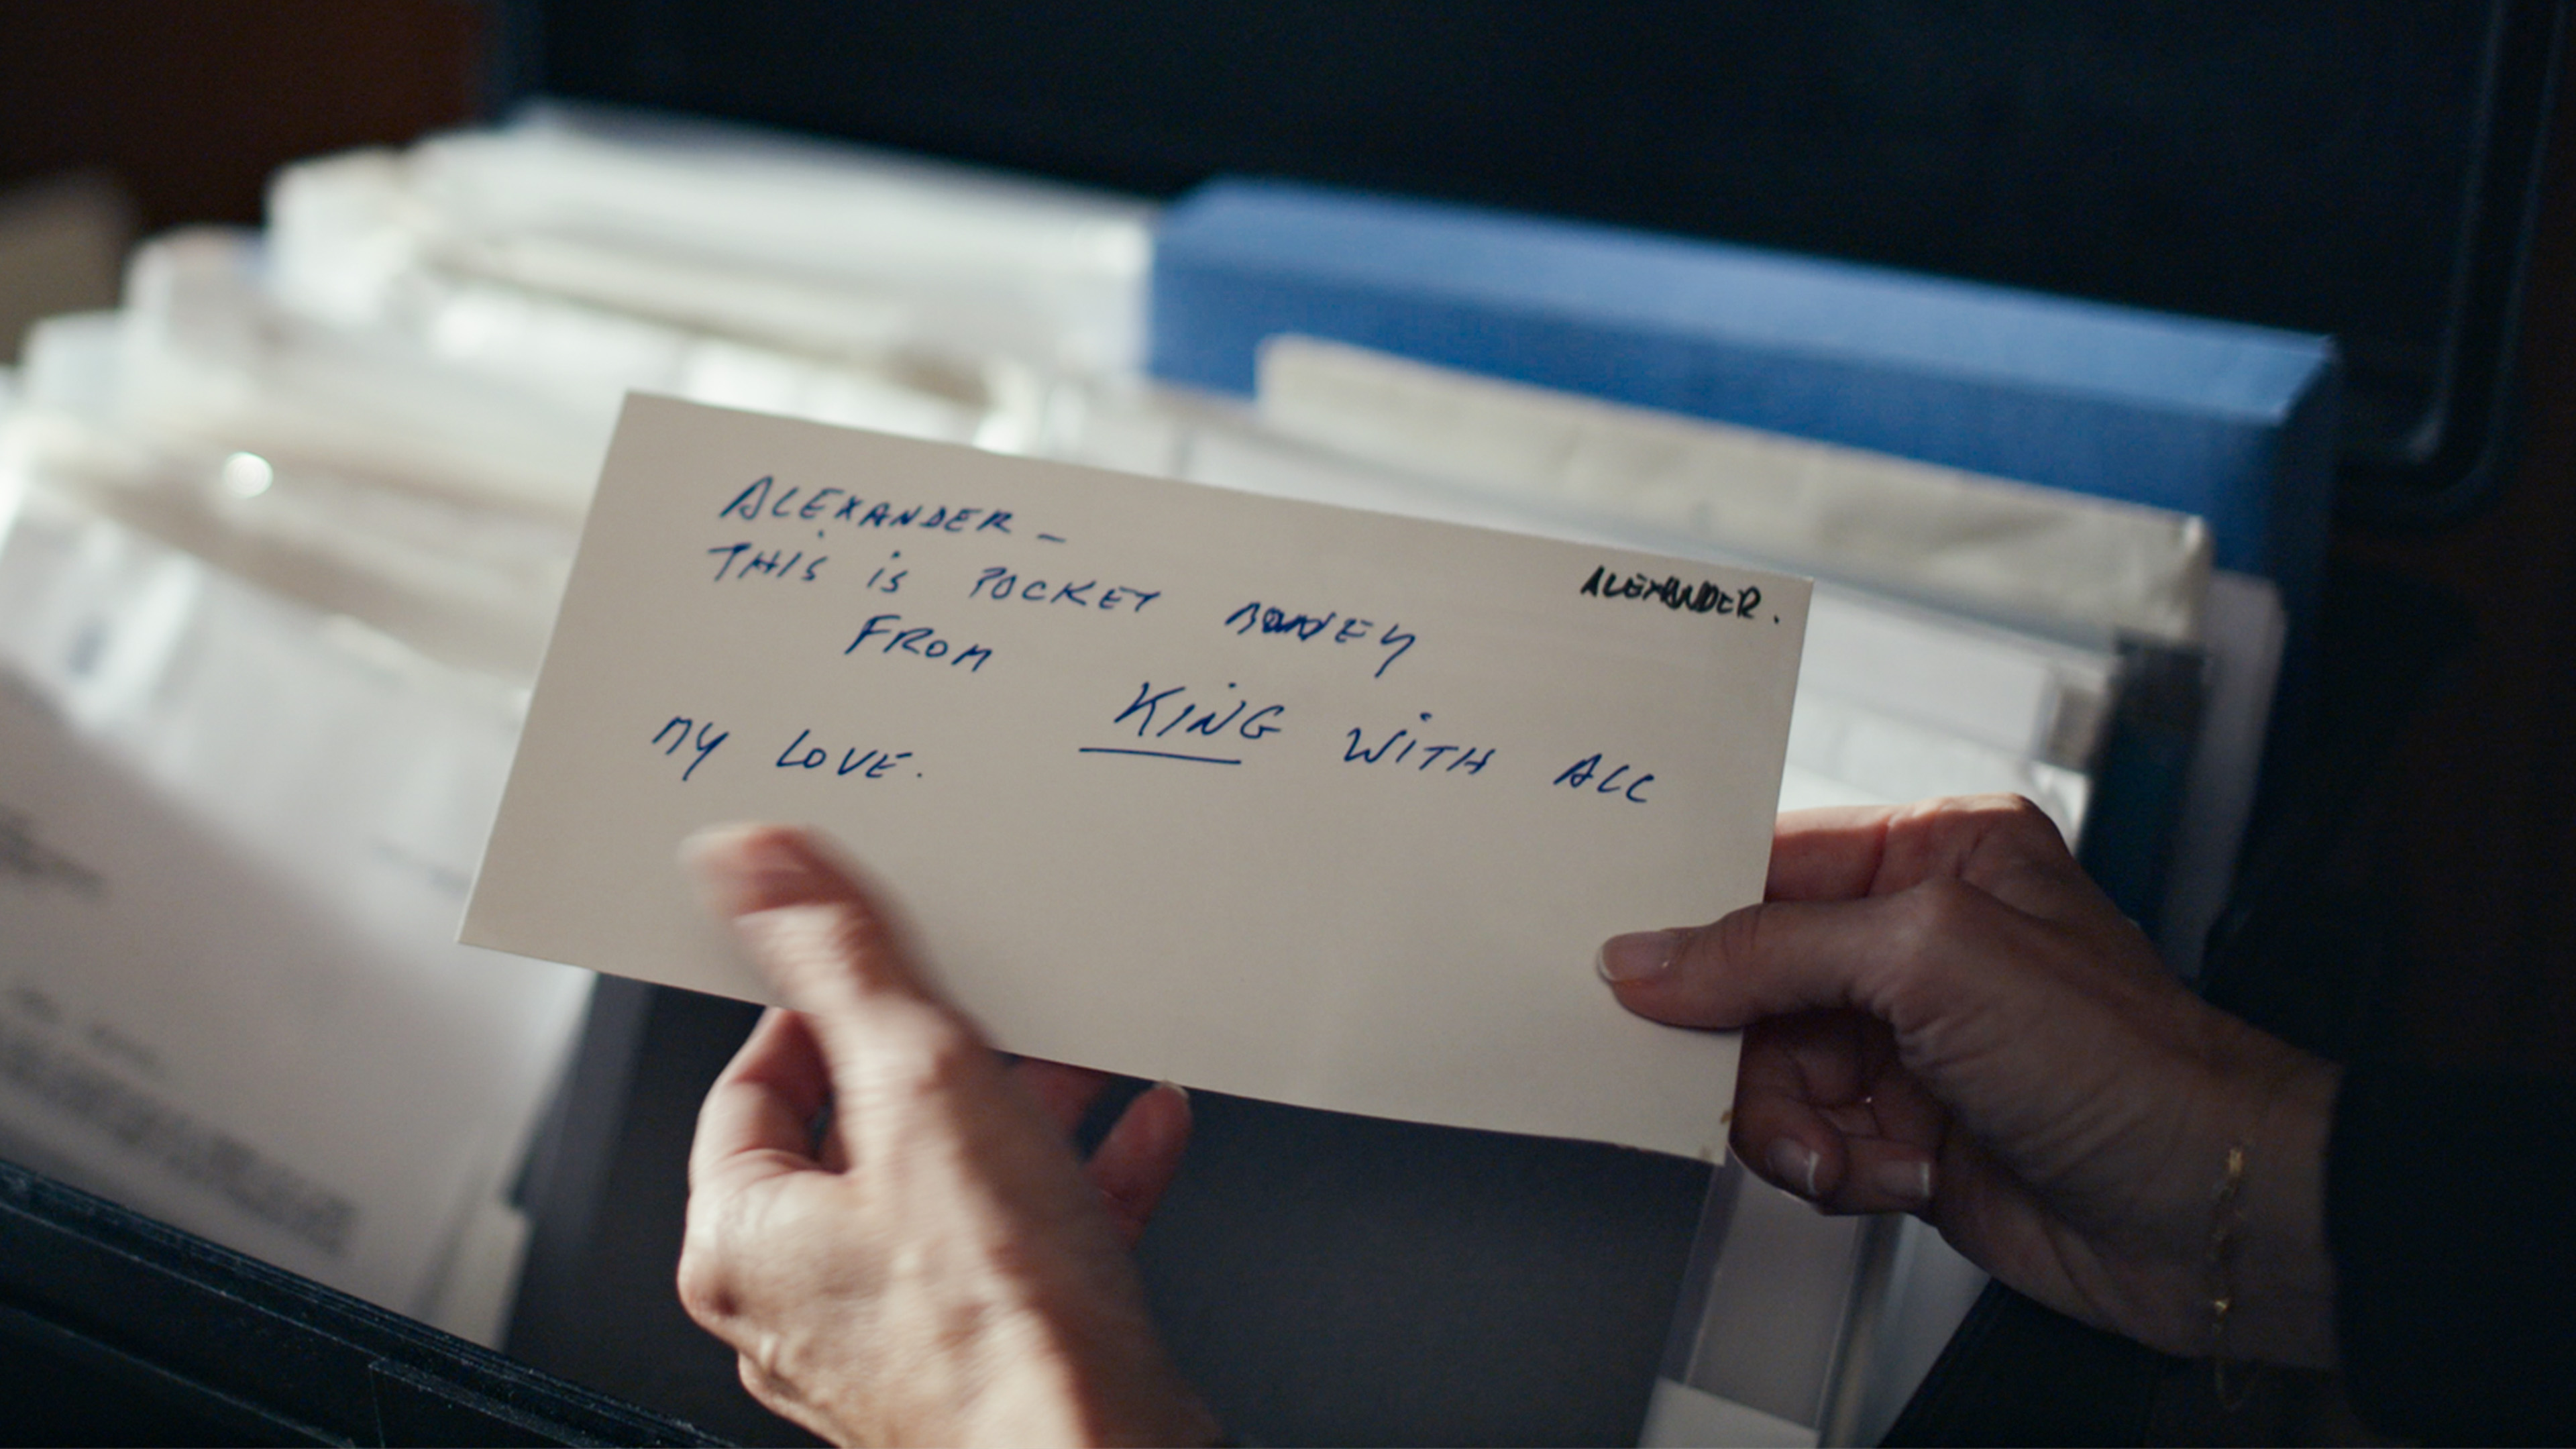 ALEXANDER.
ALEXANDER –
THIS is POCKET MONEY
FROM
KiNG WiTH ALL
MY LOVE.